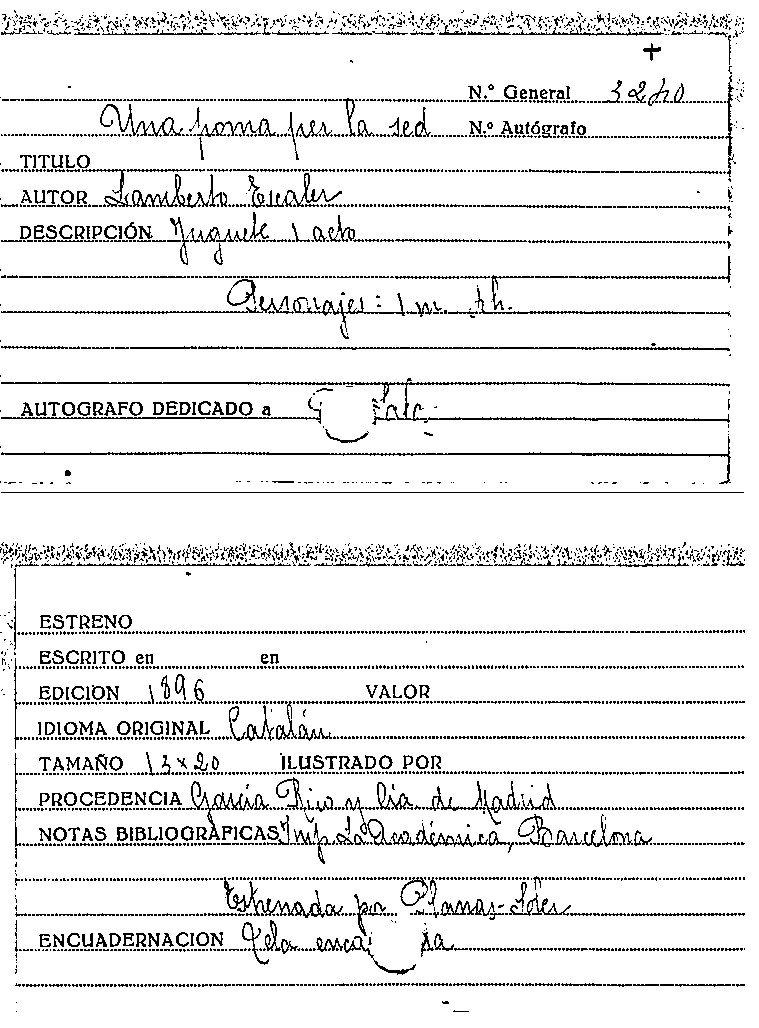 N.º General 3240
Una poma per la sed N.º Autógrafo
TITULO
AUTOR Lamberto Escaler
DESCRIPCIÓN Juguete 1 acto
Personajes: 1 m. 1 h.
AUTOGRAFO DEDICADO a
ESTRENO
ESCRITO en en
EDICION 1896 VALOR
IDIOMA ORIGINAL Catalán
TAMAÑO 13 x 20 ILUSTRADO POR
PROCEDENCIA García Rico y Cía de Madrid
NOTAS BIBLIOGRAFICAS Imp. La Académica, Barcelona
Estrenada por Planas-Soler
ENCUADERNACION Tela